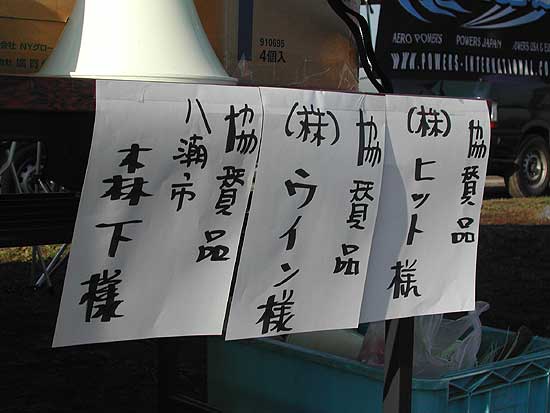 協賛品
(株)ヒット様
協賛品
(株)ウイン様
協賛品
八潮市
森下様
910695
4個入
株式会社 NYグロー
AERO POWERS
POWERS JAPAN
POWERS USA &
WWW.POWERS-INTERNATIONAL.COM